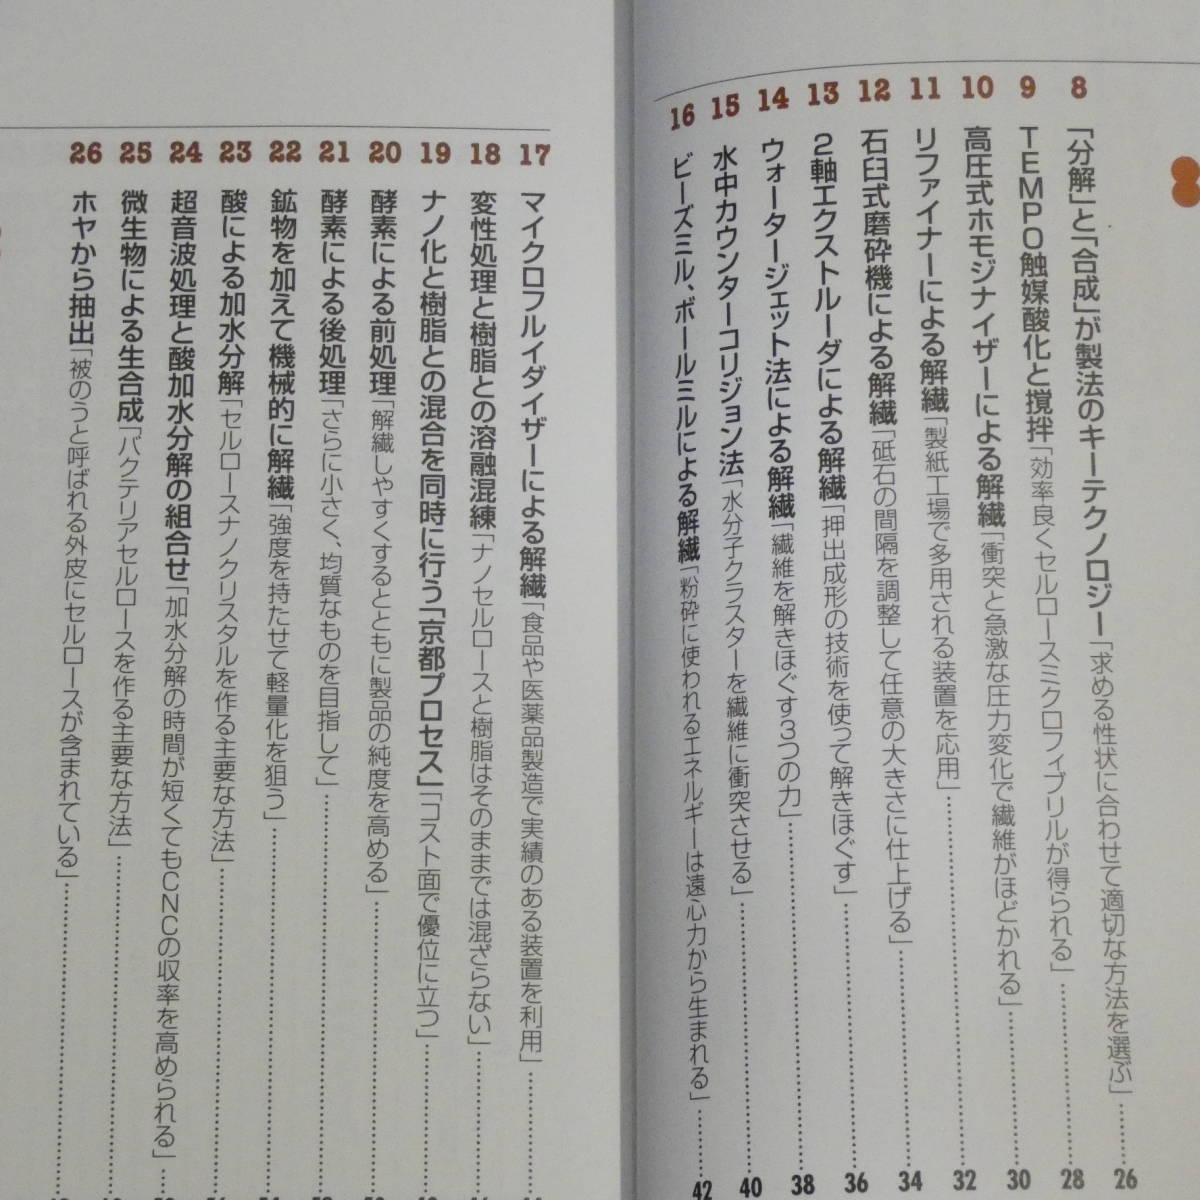 8 「分解」と「合成」が製法のキーテクノロジー「求める性状に合わせて適切な方法を選ぶ」……26
9 TEMPO触媒酸化と撹拌「効率良くセルロースミクロフィブリルが得られる」……28
10 高圧式ホモジナイザーによる解繊「衝突と急激な圧力変化で繊維がほどかれる」……30
11 リファイナーによる解繊「製紙工場で多用される装置を応用」……32
12 石臼式磨砕機による解繊「砥石の間隔を調整して任意の大きさに仕上げる」……34
13 2軸エクストルーダによる解繊「押出成形の技術を使って解きほぐす」……36
14 ウォータージェット法による解繊「繊維を解きほぐす3つの力」……38
15 水中カウンターコリジョン法「水分子クラスターを繊維に衝突させる」……40
16 ビーズミル、ボールミルによる解繊「粉砕に使われるエネルギーは遠心力から生まれる」……42
17 マイクロフルイダイザーによる解繊「食品や医薬品製造で実績のある装置を利用」……
18 変性処理と樹脂との溶融混練「ナノセルロースと樹脂はそのままでは混ざらない」……
19 ナノ化と樹脂との混合を同時に行う「京都プロセス」「コスト面で優位に立つ」……
20 酵素による前処理「解繊しやすくするとともに製品の純度を高める」……
21 酵素による後処理「さらに小さく、均質なものを目指して」……
22 鉱物を加えて機械的に解繊「強度を持たせて軽量化を狙う」……
23 酸による加水分解「セルロースナノクリスタルを作る主要な方法」……
24 超音波処理と酸加水分解の組合せ「加水分解の時間が短くてもCNCの収率を高められる」……
25 微生物による生合成「バクテリアセルロースを作る主要な方法」……
26 ホヤから抽出「被のうと呼ばれる外皮にセルロースが含まれている」……